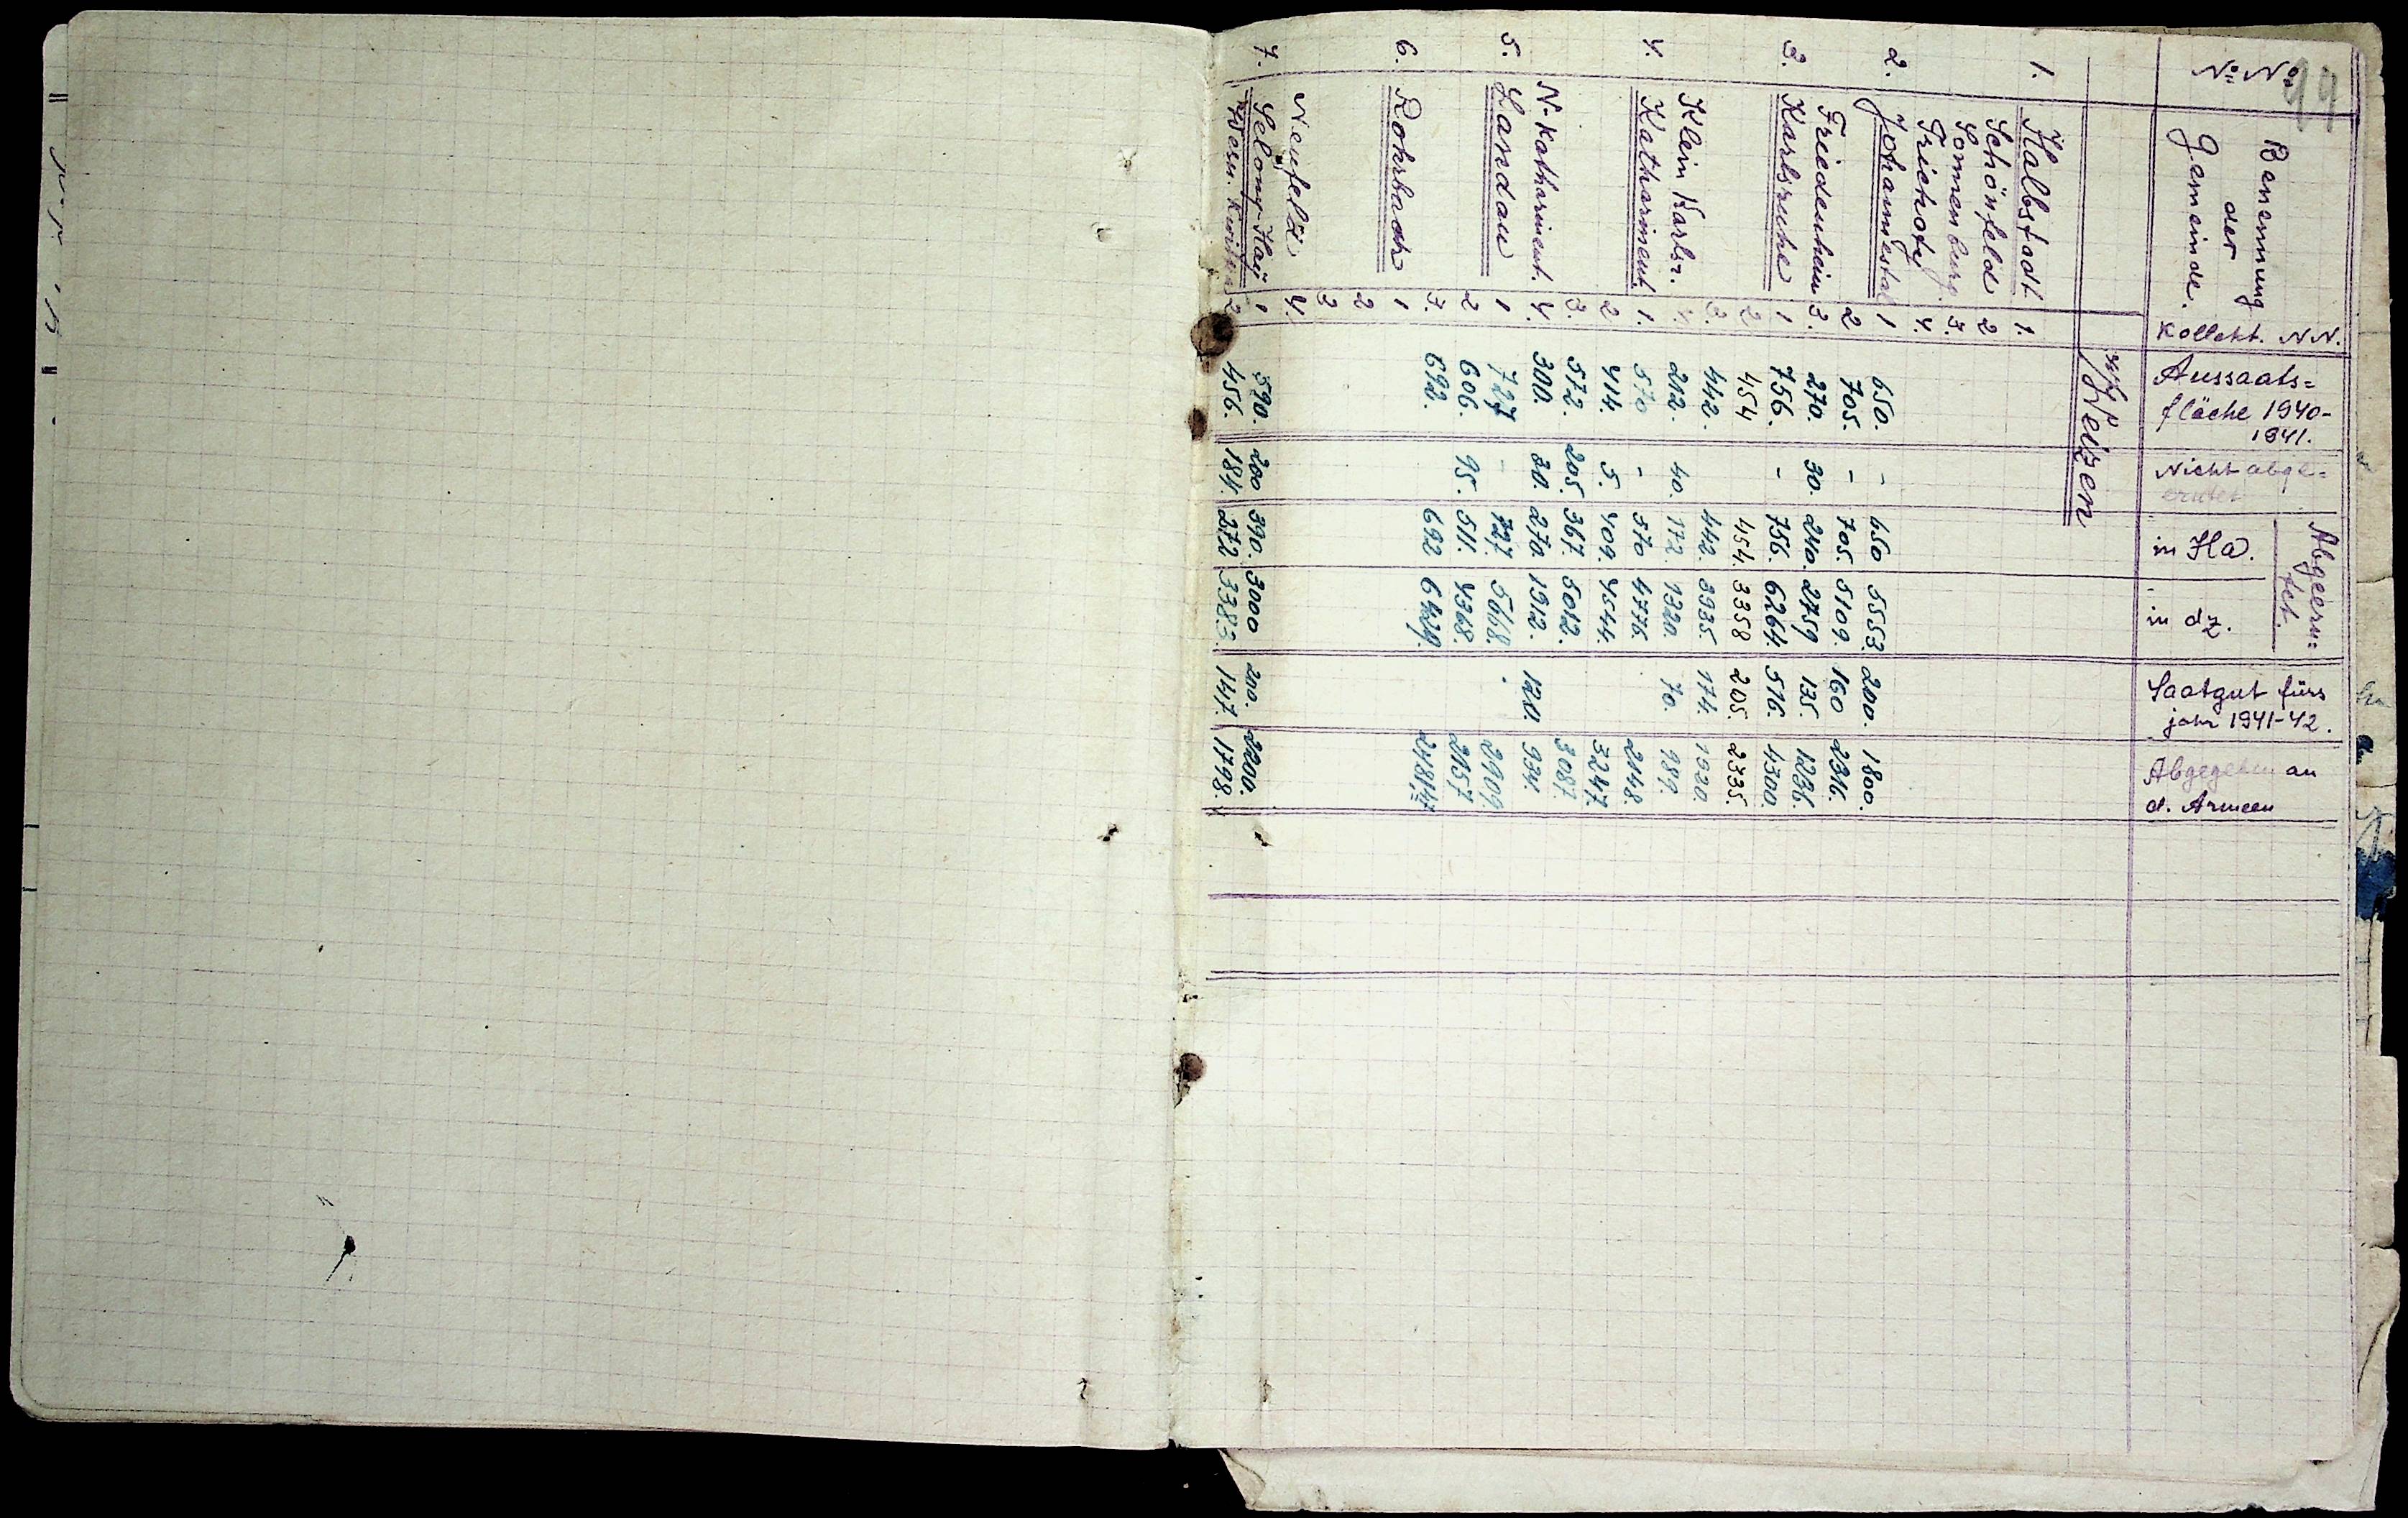 99
No. No. Benennung der Gemeinde. Kollekt. NN. Aussaats=fläche 1940-1941. Nicht abge=erntet Abgeern=tet. in Ha. in dz. Saatgut fürs jahr 1941-42. Abgegeben an d. Armeen
Weizen
1. Halbstadt 1.
Schönfeld 2
Sonnenburg 3.
Friehof 4.
2. Johannestal 1 650. - 650 5553. 200. 1800.
2 705. - 705. 5109. 160 2316.
Friedenheim 3. 270. 30. 240. 2759 135. 1296.
3. Karlsruhe 1 756. - 756. 6264. 516. 4300.
2 454 454. 3358 205. 2335.
3. 442. 442. 3935 174. 1920.
Klein Karlsr. 4. 212. 40. 172. 1320. 70. 989.
4. Katharinent. 1. 570 - 570 4776. 2148.
2 414. 5. 409. 4544. 3247.
3. 572. 205. 367. 5012. 3087
N-Katharinent. 4. 300. 30. 270 1912. 120. 934.
5. Landau 1 727 - 727 5668. 2909.
2 606. 95. 511. 4368. 2157
3. 692. 692 6429. 2484,47
6. Rohrbach 1
2
3
Neufeld 4.
7. Selony-Haj 1 590. 200 390. 3000 200. 2200.
2 456. 184. 272. 3383. 147. 1798.